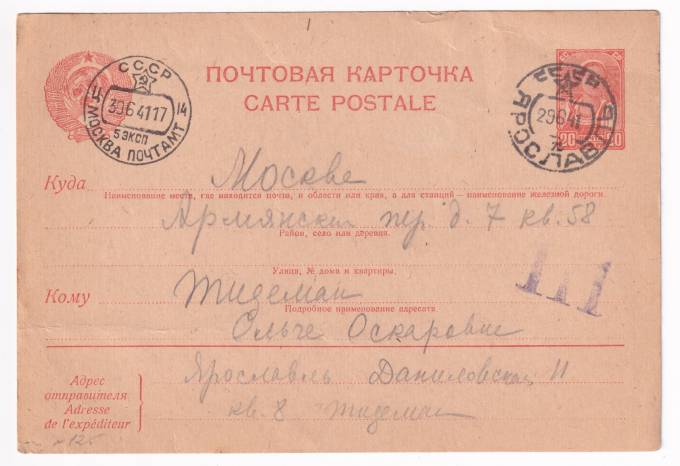 ПОЧТОВАЯ КАРТОЧКА
CARTE POSTALE
СССР
30641 17
5 ЭКСП
МОСКВА ПОЧТАМТ
14
СССР
29641
ЯРОСЛАВЛЬ
20
Куда Москве
Наименование места, где находится почта, и области или края, а для станций — наименование железной дороги.
Армянский пер. д. 7 кв. 58
Район, село или деревня.
Улица, № дома и квартиры.
Кому Тидеман
Подробное наименование адресата
Ольге Оскаровне
Адрес
отправителя
Adresse
de l'expéditeur
Ярославль Даниловская 11
кв. 8 Тидеман
№125